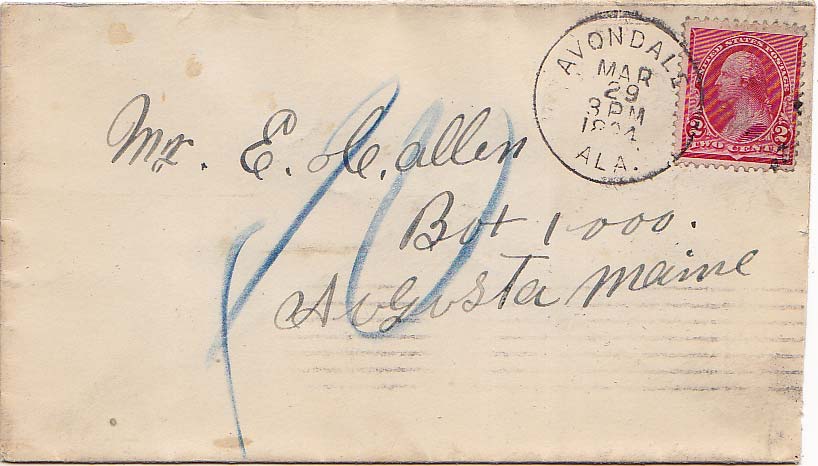 AVONDALE
MAR
29
3 PM
1894
ALA.
UNITED STATES POSTAGE
2 2
TWO CENTS
Mr. E. C. Allen
Box 1000.
Augusta Maine
10